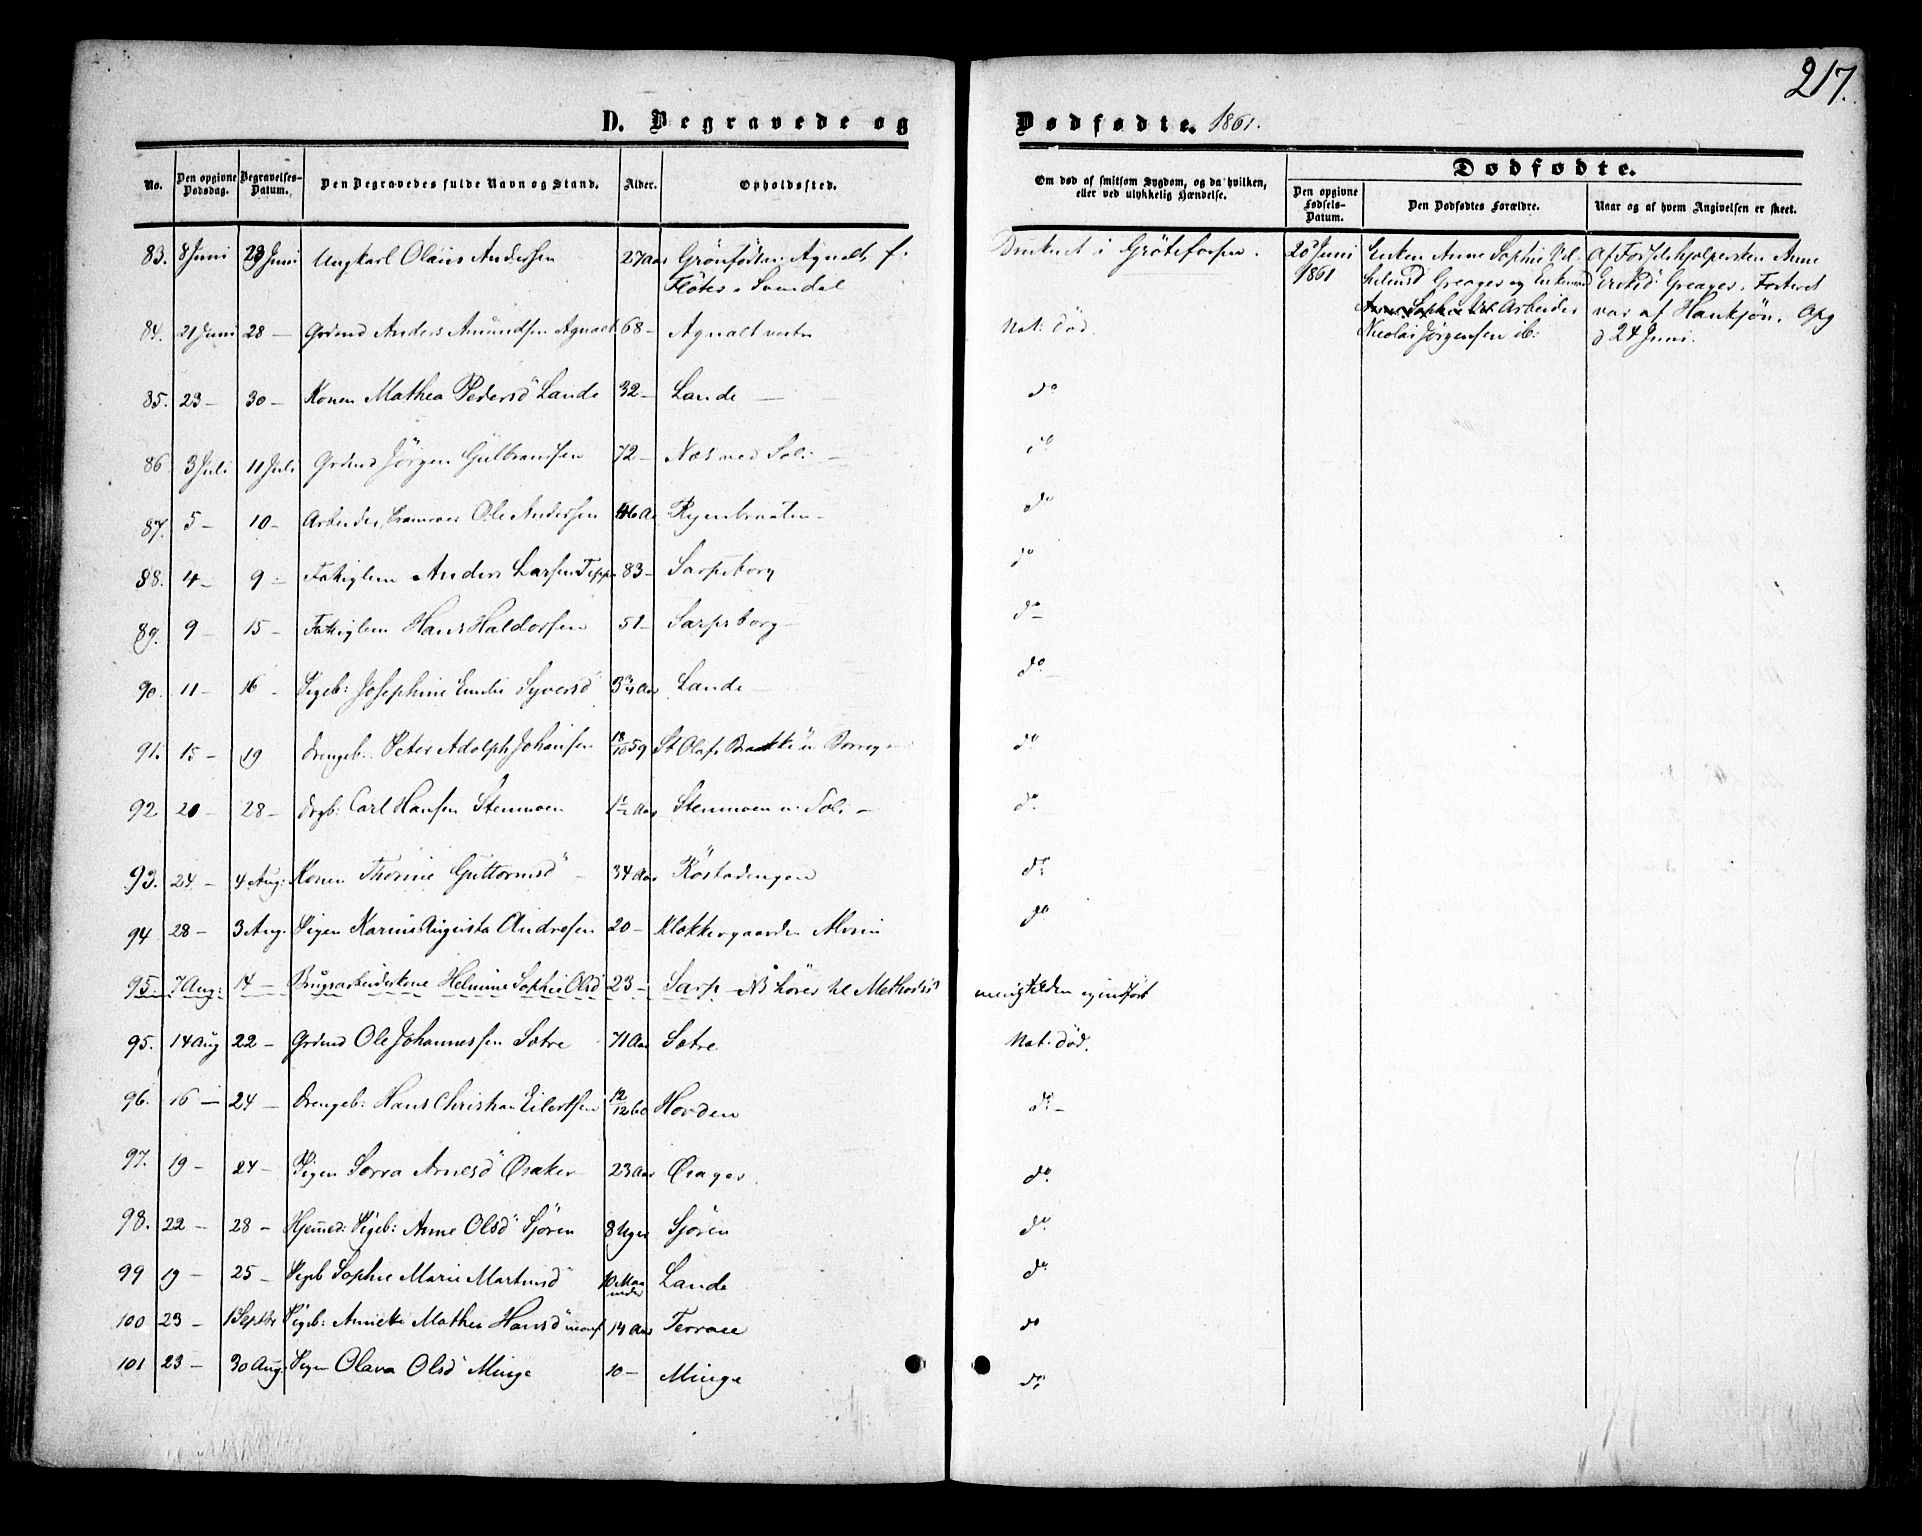 217.
D. Begravede og Dødfødte. 1861.
No. Den opgivne Dødsdag. Begravelses-Datum. Den Begravedes fulde Navn og Stand. Alder. Opholdssted. Om død af smitsom Sygdom, og da hvilken, eller ved ulykkelig Hændelse.
Dødfødte.
Den opgivne Fødsels-Datum. Den Dødfødtes Forældre. Naar og af hvem Angivelsen er skeet.
83. 8 Juni 23 Juni Ungkarl Olaus Andersen 27 Aar Agnalt, f. Fløter i Svendal Druknet i Grötefossen.
84. 21 Juni 28 — Grdmd Anders Amundsen Agnalt 68 — Agnalt vestre Nat: død.
85. 23 — 30 — Konen Mathea Pedersd Lande 32 — Lande — do
86 3 Juli 11 Juli Grdmd Jörgen Gulbransen 72 — Næs ved Soli — do
87. 5 — 10 — Arbeider Ole Andersen 46 Aa — do
88. 4 — 9 — Fattiglem Anders Larsen Teppe 83 — Sarpsborg do
89. 9 — 15 — Fattiglem Hans Haldorsen 51 — Sarpsborg — do —
90. 11 — 16 — Pigeb: Josephine Emilie Syversd 3 3/4 Aar Lande — do —
91. 15 — 19 Drengeb: Peter Adolph Johansen 18/10 59 St Olafs do
92 20 — 28 — Drgb: Carl Hansen Stenmoen 1 1/2 Aar Stenmoen v. Soli — do
93. 24 — 4 Aug: Konen Thorine Guttormsd — 34 Aar do
94 28 — 3 Aug. Pigen Karine Augusta Andresen 20 — Klokkergaarden Alvim do
95. 7 Aug: 14 — Brugsarbeiderkone Helmine Sophie Olsd 23 — Sarp — NB höres til Methodist menigheden
95. 14 Aug 22 — Grdmd Ole Johannessen Sætre 71 Aar Sætre Nat. död.
96. 16 — 24 — Drengeb: Hans Christian Eilertsen 12/12 60 Hovden do —
97. 19 — 24 — Pigen Arnesd Oraker 23 Aar do
98. 22 — 28 — Hjemmed: Pigeb: Anne Olsd Sjören 8 Uger Sjören do
99 19 — 25 — Pigeb Sophie Marie Martinsd 10 Maaneder Lande do
100 23 — 1 Septbr Pigeb: Annette Mathea Hansd 14 Aar Terrasse do
101 23 — 30 Aug: Pigen Olava Olsd Minge 10 — Minge do
20 Juni 1861
Enken Anne Sophie
Greager og Enkemand
Arbeider
Nicolai Jørgensen ib:
Af Anne
Greager. Fosteret
var af Hankjøn. Opg
d 24 Juni.